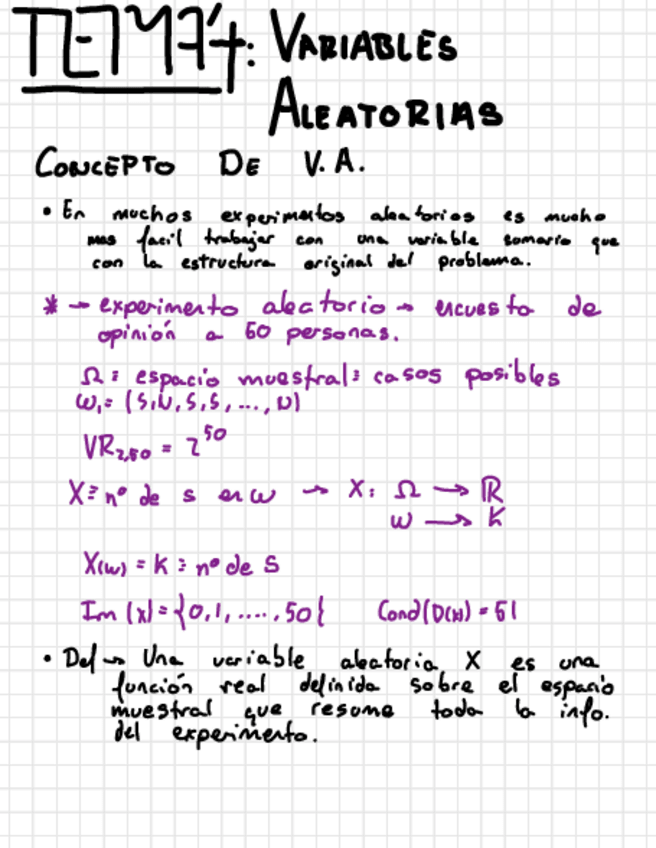 TEMA 4: VARIABLES
ALEATORIAS
CONCEPTO DE V.A.
• En muchos experimentos aleatorios es mucho
mas facil trabajar con una variable sumario que
con la estructura original del problema.
* → experimento aleatorio → encuesta de
opinión a 50 personas.
Ω ≡ espacio muestral ≡ casos posibles
ω₁ = (S,N,S,S, ..., N)
VR₂,₅₀ = 2⁵⁰
X ≡ nº de s en ω → X: Ω → ℝ
ω → K
X(ω) = K ≡ nº de S
Im (X) = {0,1, ...., 50} Card(D(X)) = 51
• Def → Una variable aleatoria X es una
función real definida sobre el espacio
muestral que resume toda la info.
del experimento.